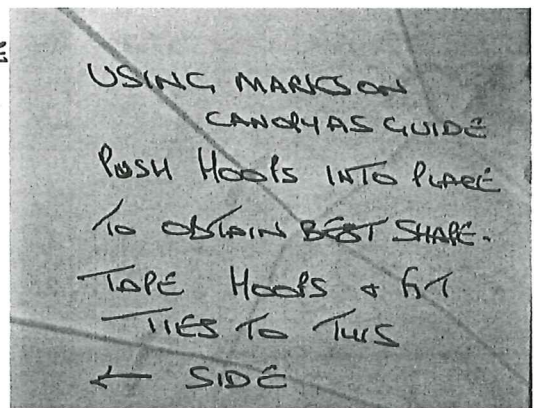 USING MARKS ON
CANOPY AS GUIDE
PUSH HOOPS INTO PLACE
TO OBTAIN BEST SHAPE.
TAPE HOOPS & FIT
TIES TO THIS
← SIDE